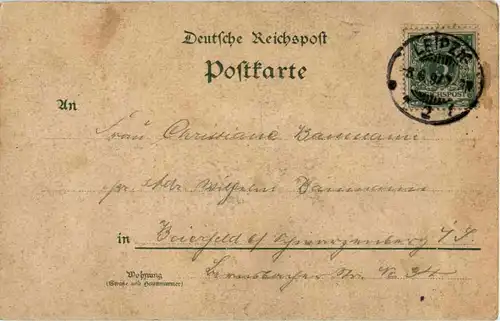 Deutsche Reichspost
Postkarte
LEIPZIG
REICHSPOST
An
Frau Christiane Baumann
pr. Adr. Wilhelm Baumann
in Beierfeld b/ Schwarzenberg i/S.
Wohnung
(Straße und Hausnummer)
Bernsbacher Str. No 24